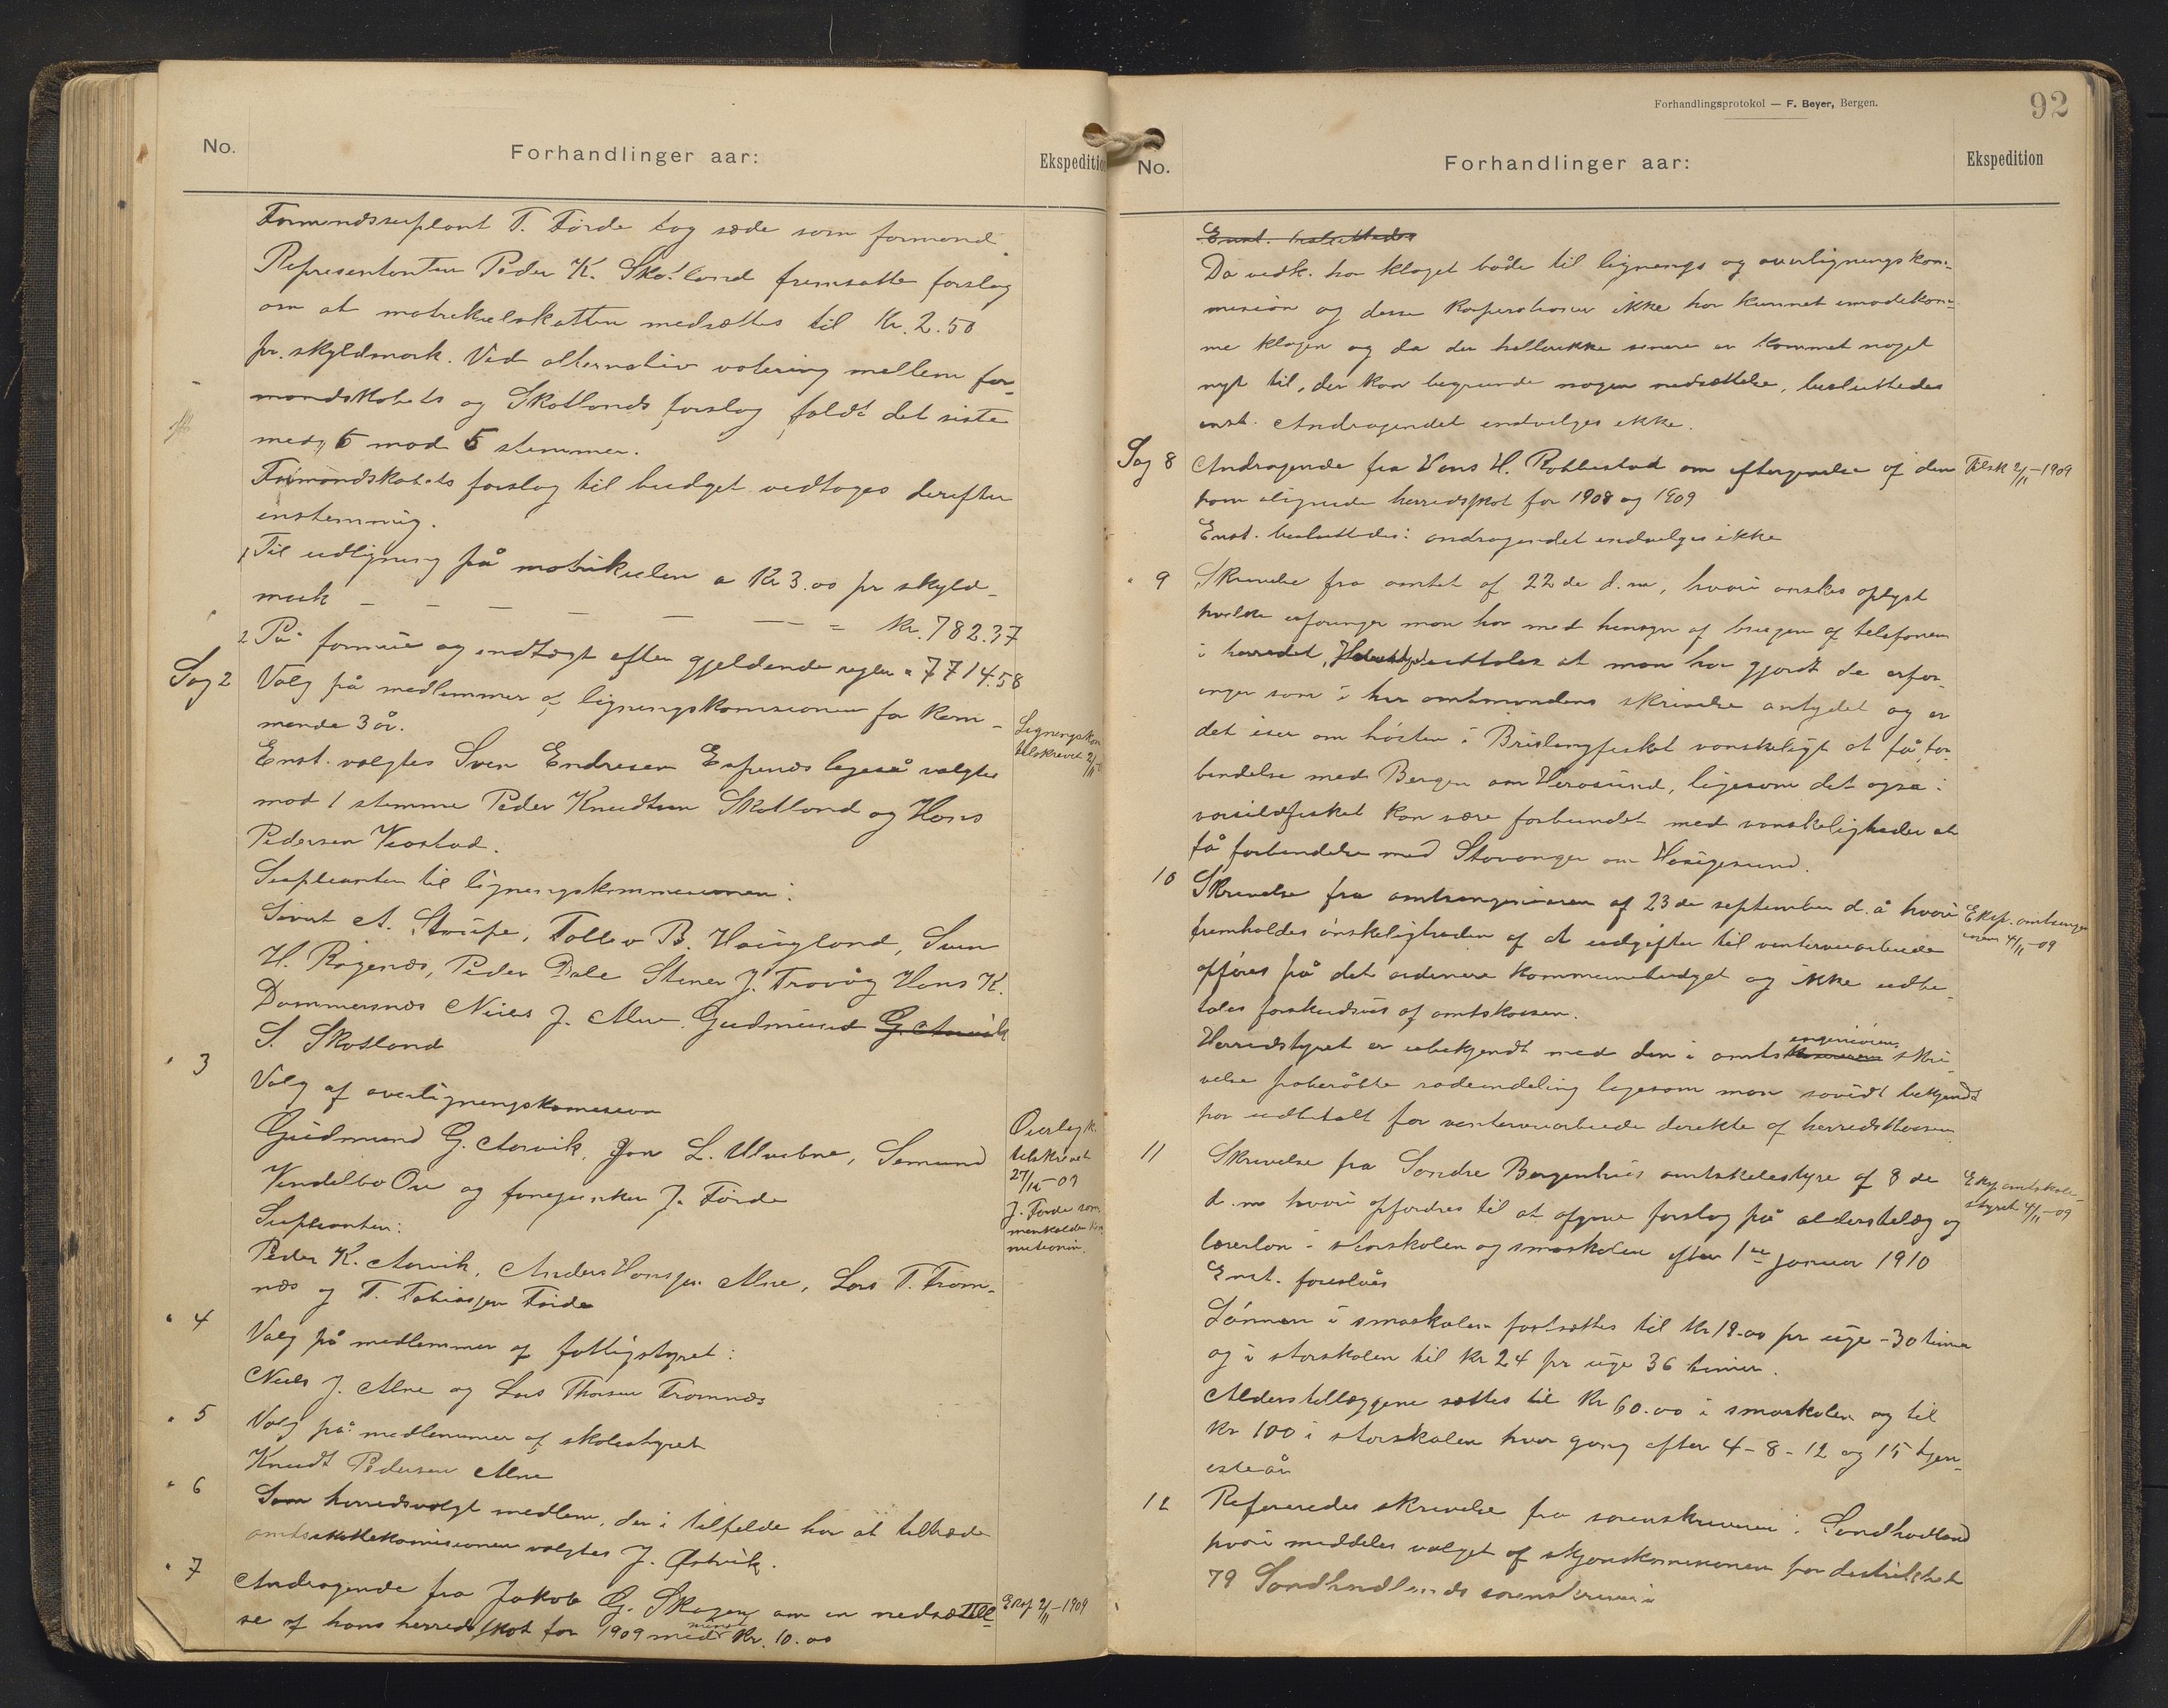 No.
Forhandlinger aar:
Ekspedition
Formandssuplant T. Førde tog sæde som formand
Representanten Peder K. Skotland fremsatte forslag
om at matrikulskatten nedsættes til Kr. 2.50
pr. skyldmark. Ved alternativ votering mellem for-
mandskabets og Skotlands forslag faldt det siste
med 6 mod 5 stemmer.
Formandskabets forslag til budget vedtoges derefter
enstemmig.
1 Til udligning på matrikulen a Kr 3.00 pr skyld-
mark – – – – – – – = Kr. 782.37
2 På formue og indtægt efter gjeldende regler " 7714.58
Sag 2
Valg på medlemmer af ligningskomisionen for kom-
mende 3 år.
Ligningskom
tilskrevet 2/11
Enst. valgtes Sven Endresen Espenes ligeså valgtes
mod 1 stemme Peder Knudtsen Skotland og Hans
Pedersen Veastad.
Supleanter til ligningskommisionen:
Sivert A. Støupe, Tollev B. Haugland, Sven
H. Rägenes, Peder Dale Stener J. Trovåg Hans K.
Dommersnes Niels J. Alne. Gudmund G. Aarvik
S. Skotland
" 3
Valg af overligningskomision
Gudmund G. Aarvik, Jon L. Ulvebne, Semund
Vendelbo Oe og fanejunker J. Førde
Overlgk.
tilskrevet
27/10-09
J. Førde som
Supleanter:
Peder K. Aarvik, Anders Hansen Alne, Lars T. From-
nes og T. Tobiassen Førde
" 4
Valg på medlemmer af fattigstyret:
Niels J. Alne og Lars Thorsen Fromnes
" 5
Valg på medlemmer af skolestyret
Knudt Pedersen Alne
" 6
Som herredsvalgt medlem, der i tilfelde har at tiltræde
amtsskattekomisionen valgtes J. Østvik.
" 7
Andragende fra Jakob G. Skagen om en nedsættel-
se af hans herredsskat for 1909 med mindst Kr. 10.00
Eksp 2/11-1909
Forhandlingsprotokol — F. Beyer, Bergen.
92
No.
Forhandlinger aar:
Ekspedition
Enst. besluttedes
Da vedk. har klaget både til lignings og overligningskom-
mision og desse korporationer ikke har kunnet imødekom-
me klagen og da der hellerikke senere er kommet noget
nyt til, der kan begrunde nogen nedsættelse, besluttedes
enst. Andragendet indvilges ikke.
Sag 8
Andragende fra Hans H. Robbestad om eftergivelse af den
ham ilignede herredsskat for 1908 og 1909
Tilsk 2/11-1909
Enst. besluttedes: andragendet indvilges ikke
" 9
Skrivelse fra amtet af 22de d.m, hvori ønskes oplyst
hvilke erfaringer man har med hensyn af brugen af telefonen
i herredet, udtales at man har gjordt de erfar-
inger som i hr amtmandens skrivelse antydet og er
det iser om høsten i Brislingfisket vanskeligt at få for-
bindelse med Bergen om Herøsund, ligesom det også i
vårsildfisket kan være forbundet med vanskeligheder at
få forbindelse med Stavanger om Haugesund.
10
Skrivelse fra amtsingeniøren af 23de september d. å hvori
fremholdes ønskeligheden af at udgifter til vinterveiarbeide
opføres på det ordinære kommunebudget og ikke udbe-
tales forskudsvis af amtskassen.
Eksp. amtsingen-
iøren 4/11-09
Herredstyret er ubekjendt med den i amtsingeniøren skri-
velse påberåbte rodeindeling ligesom man såvidt bekjendt
har udbetalt for vinterveiarbeide direkte af herredskassen
11
Skrivelse fra Søndre Bergenhus amtskolestyre af 8de
d. m hvori opfordres til at afgive forslag på alderstillæg og
lærerløn i storskolen og småskolen efter 1ste januar 1910
Eksp amtskole-
styret 4/11-09
Enst. foreslåes
Lønnen i småskolen fastsættes til Kr 18-00 pr uge - 30 timer
og i storskolen til Kr 24 pr uge 36 timer.
Alderstillæggene sættes til Kr 60.00 i småskolen og til
Kr 100 i storskolen hver gang efter 4-8-12 og 15 tjen-
esteår
12
Refereredes skrivelse fra sorenskriveren i Søndhordland
hvori meddeles valget af skjønskomisionen for distriktet
79 Søndhordlands sorenskriveri